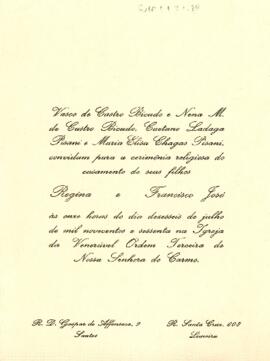 Vasco de Castro Bicudo e Nena M.
de Castro Bicudo, Caetano Ladaga
Pisani e Maria Elisa Chagas Pisani,
convidam para a cerimônia religiosa do
casamento de seus filhos
Regina e Francisco José
às onze horas do dia dezesseis de julho
de mil novecentos e sessenta na Igreja
da Venerável Ordem Terceira de
Nossa Senhora do Carmo.
R. D. Gaspar de Affonseca, 9
Santos
R. Santa Cruz,
Limeira